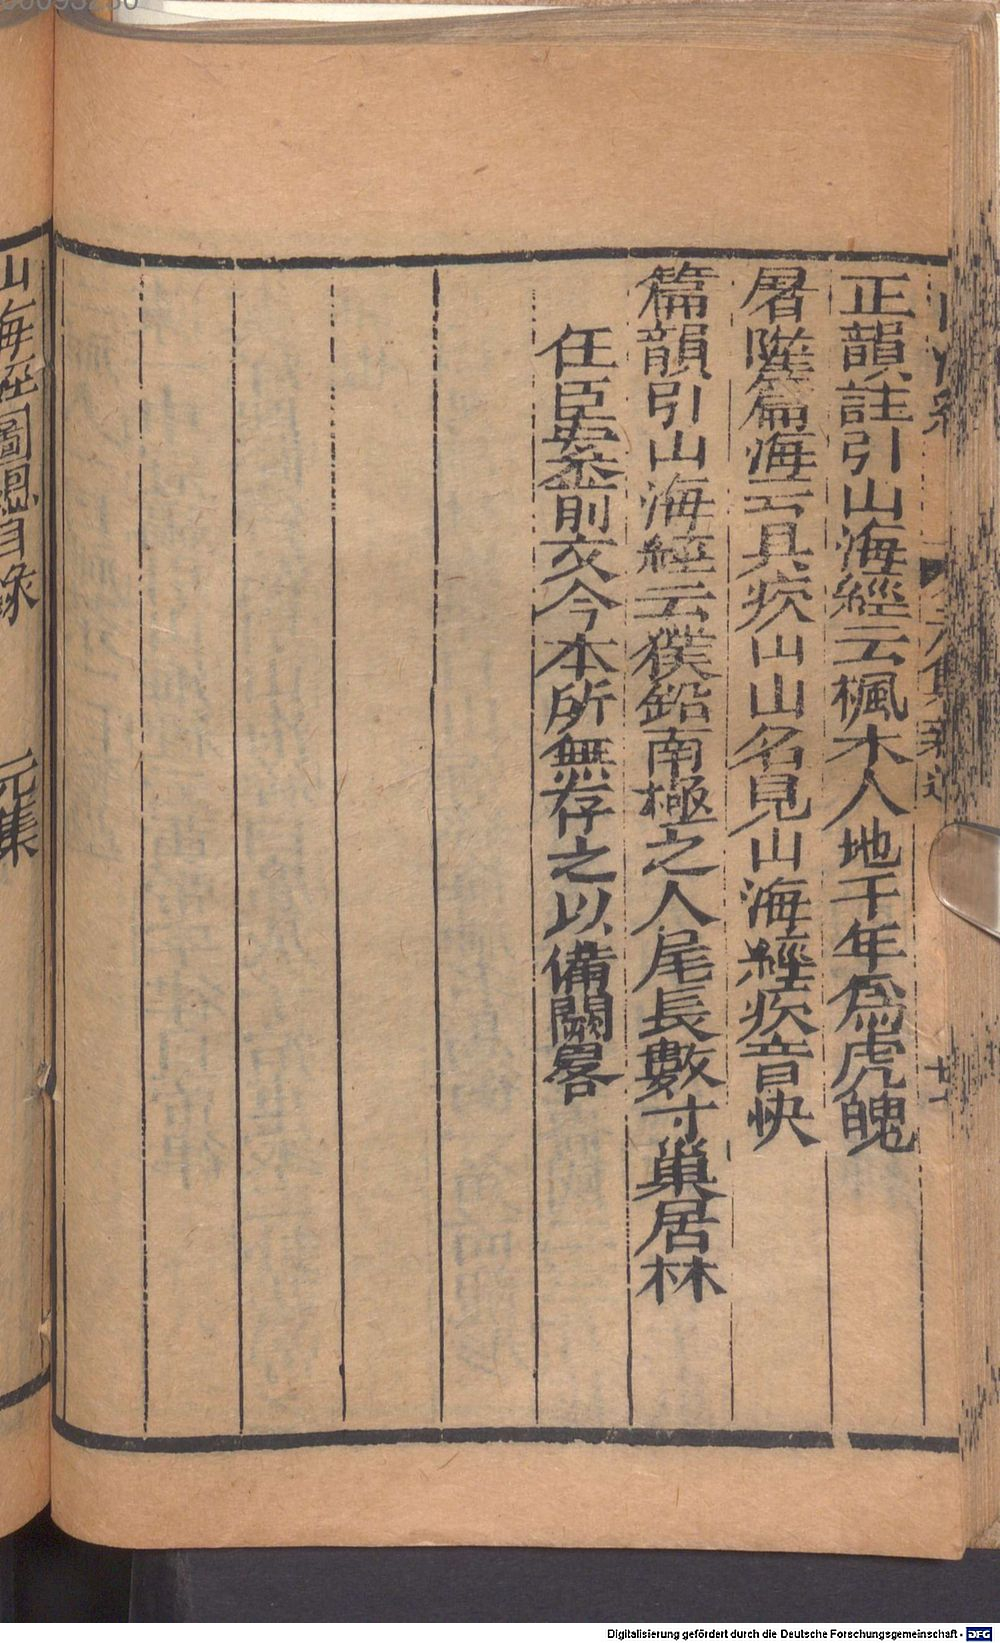 正韻註引山海經云楓木人地千年爲虎魄
屠隆篇海云具疢山山名見山海經疢音快
篇韻引山海經云獛鉛南極之人尾長數寸巢居林
任臣案前文今本所無存之以備闕畧
山海經圖總目錄 元集
Digitalisierung gefördert durch die Deutsche Forschungsgemeinschaft - DFG